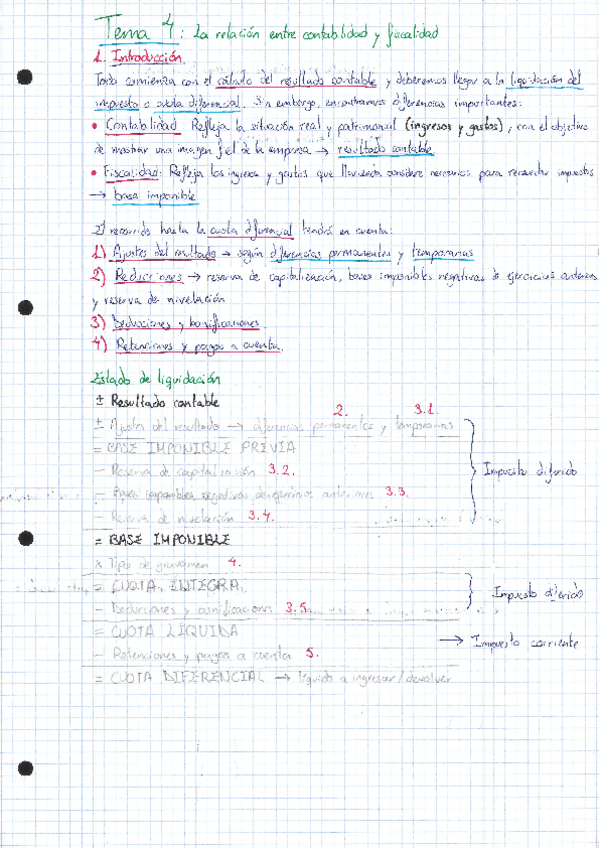 Tema 4: La relación entre contabilidad y fiscalidad
1. Introducción
Todo comienza con el cálculo del resultado contable y deberemos llegar a la liquidación del
impuesto o cuota diferencial. Sin embargo, encontramos diferencias importantes:
• Contabilidad: Refleja la situación real y patrimonial (ingresos y gastos), con el objetivo
de mostrar una imagen fiel de la empresa → resultado contable
• Fiscalidad: Refleja los ingresos y gastos que Hacienda considera necesarios para recaudar impuestos
→ base imponible
El recorrido hasta la cuota diferencial tendrá en cuenta:
1) Ajustes del resultado → según diferencias permanentes y temporarias
2) Reducciones → reserva de capitalización, bases imponibles negativas de ejercicios anteriores
y reserva de nivelación
3) Deducciones y bonificaciones.
4) Retenciones y pagos a cuenta.
Estado de liquidación
± Resultado contable
2. 3.1.
± Ajustes del resultado → diferencias permanentes y temporarias
= BASE IMPONIBLE PREVIA
- Reserva de capitalización 3.2. Impuesto diferido
- Bases imponibles negativas de ejercicios anteriores 3.3.
- Reserva de nivelación 3.4.
= BASE IMPONIBLE
x Tipo de gravamen 4.
= CUOTA INTEGRA Impuesto diferido
- Deducciones y bonificaciones 3.5.
= CUOTA LÍQUIDA → Impuesto corriente
- Retenciones y pagos a cuenta 5.
= CUOTA DIFERENCIAL → líquido a ingresar/devolver